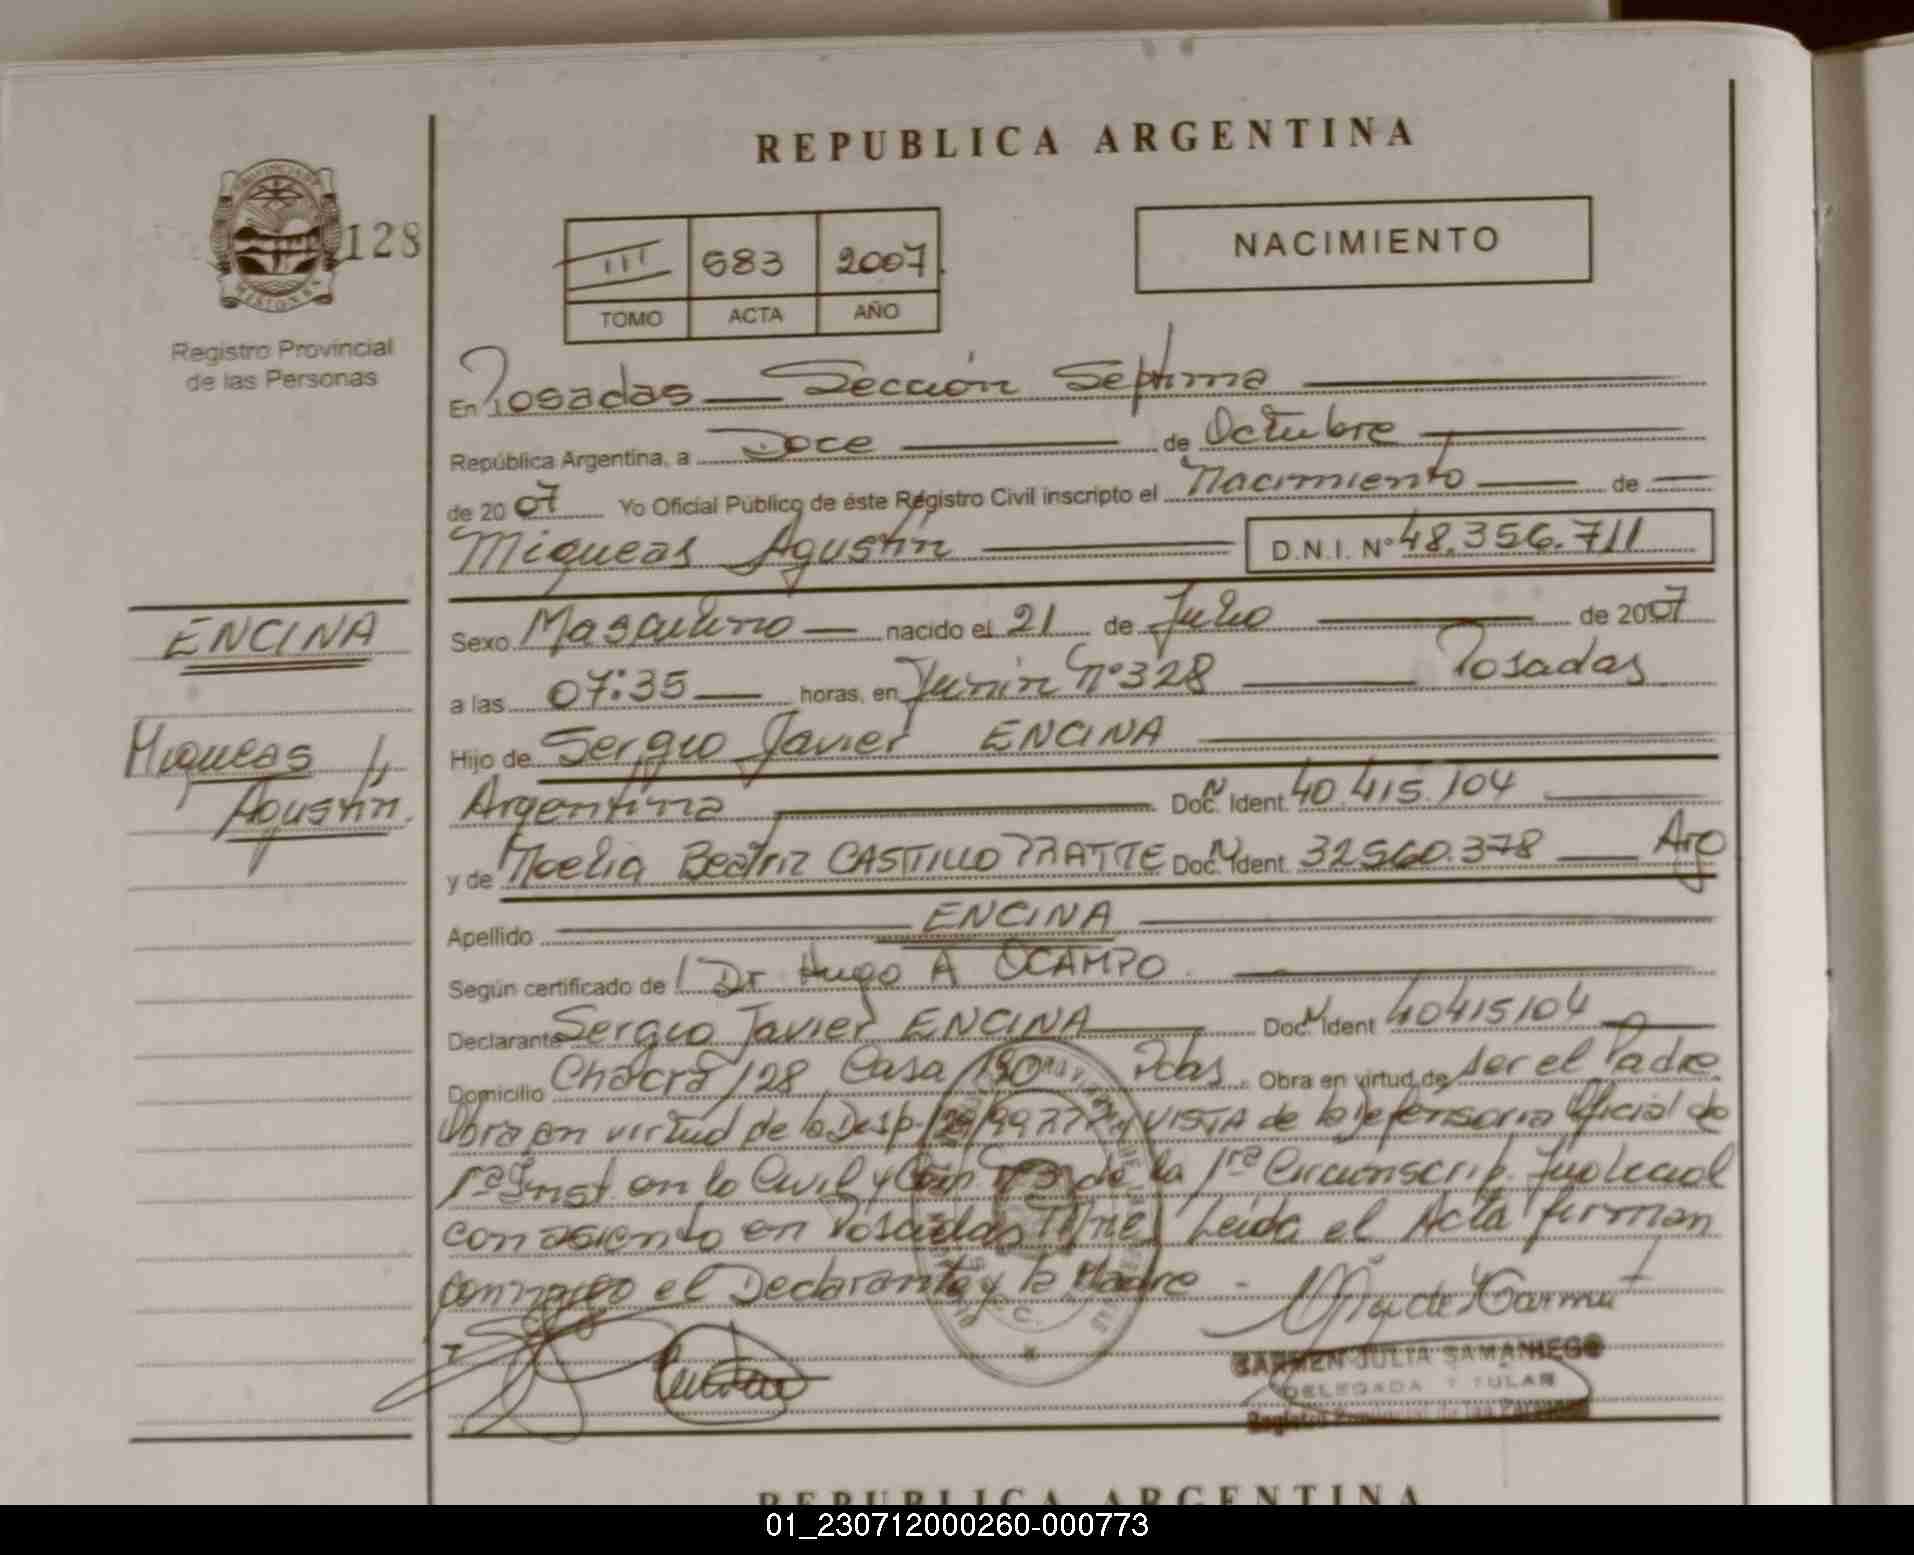 REPUBLICA ARGENTINA
128
III 583 2007
TOMO ACTA AÑO
NACIMIENTO
Registro Provincial
de las Personas
En Posadas Sección Septima
República Argentina, a Doce de Octubre
de 2007 Yo Oficial Público de éste Registro Civil inscripto el Nacimiento de
Miqueas Agustín D.N.I. Nº 48.356.711
ENCINA
Sexo Masculino nacido el 21 de Julio de 2007
a las 07:35 horas, en Junín Nº 328 Posadas
Miqueas
Agustín.
Hijo de Sergio Javier ENCINA
Argentina Doc. N Ident. 40.415.104
y de Noelia Beatriz CASTILLO Doc. N Ident. 32560.378 Arg
Apellido ENCINA
Según certificado de Dr Hugo A OCAMPO
Declarante Sergio Javier ENCINA Doc. N Ident 40415104
Domicilio Chacra 128 Casa 190 Pdas. Obra en virtud de ser el Padre
Obra en virtud de la Disp. VISTA de la Defensoria Oficial de
1ª Inst. en lo Civil y Com Nº 3 de la 1ra Circunscrip. Judicial
con asiento en Posadas Mnes Leida el Acta firman
conmigo el Declarante y la Madre -
CARMEN JULIA SAMANIEGO
DELEGADA TITULAR
Registro Provincial de las Personas
REPUBLICA ARGENTINA
01_230712000260-000773